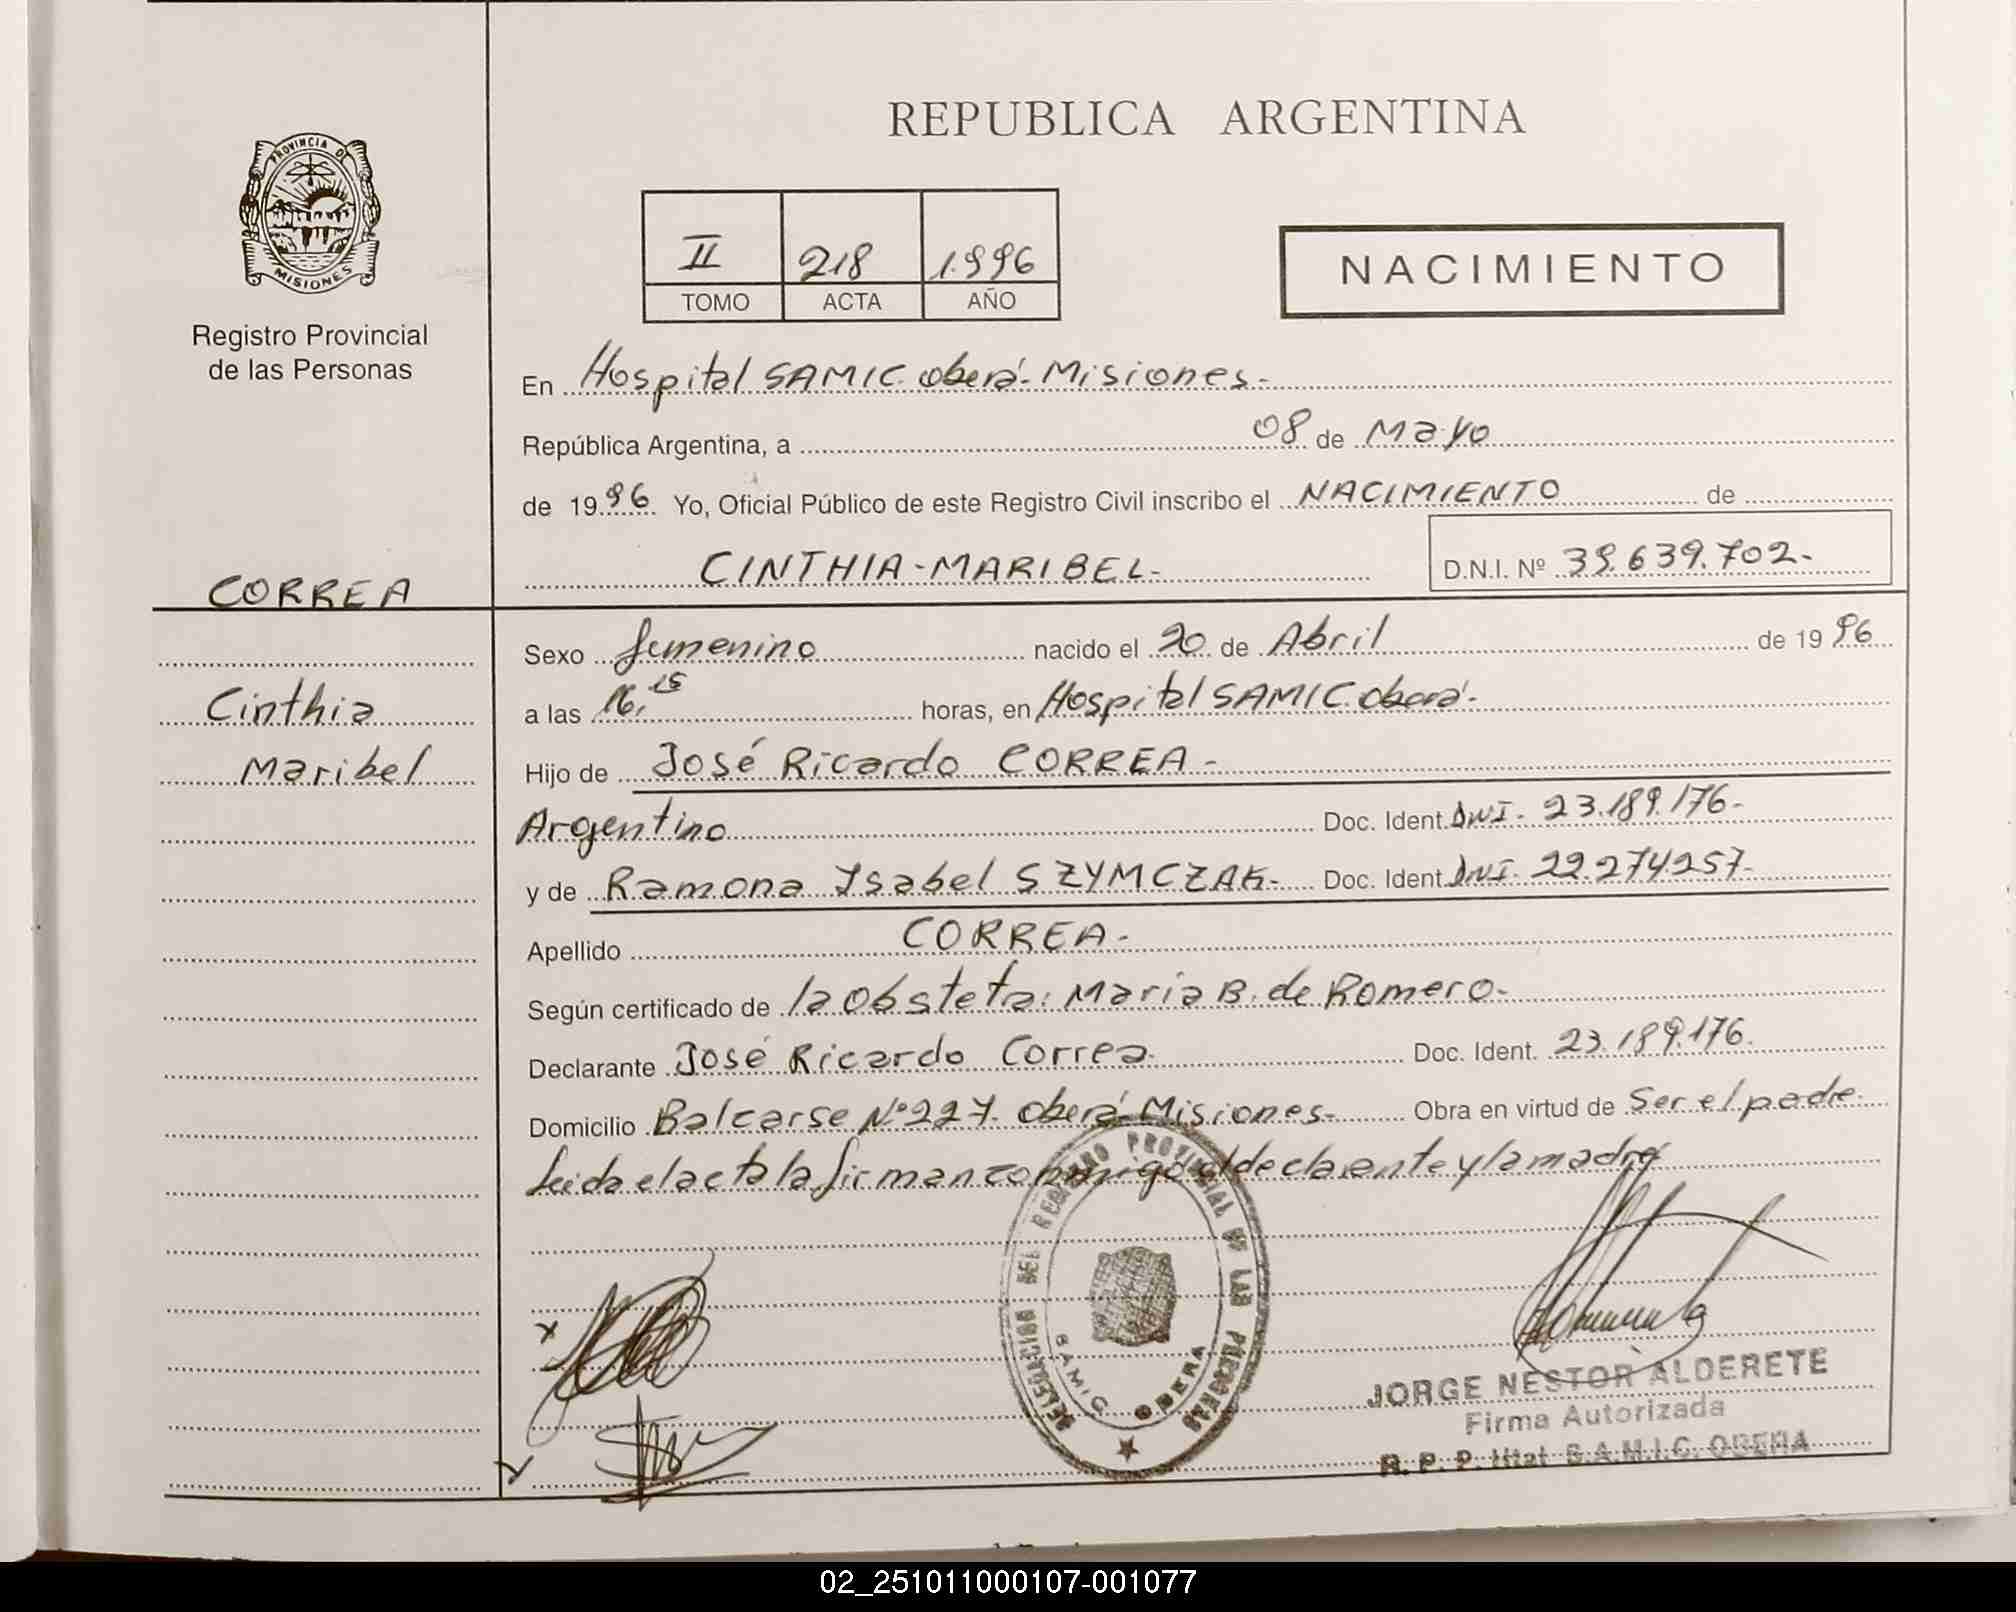 REPUBLICA ARGENTINA
PROVINCIA DE
MISIONES
Registro Provincial
de las Personas
II 218 1.996
TOMO ACTA AÑO
NACIMIENTO
En Hospital SAMIC. oberá-Misiones-
República Argentina, a 08 de Mayo
de 1996 Yo, Oficial Público de este Registro Civil inscribo el NACIMIENTO de
CORREA
CINTHIA-MARIBEL-
D.N.I. Nº 39.639.702-
Cinthia
Maribel
Sexo femenino nacido el 20 de Abril de 1996
a las 16,15 horas, en Hospital SAMIC. oberá-
Hijo de José Ricardo CORREA-
Argentino Doc. Ident. DNI- 23.189.176-
y de Ramona Ysabel SZYMCZAK- Doc. Ident. DNI- 22.274.257-
Apellido CORREA-
Según certificado de la obsteta: Maria B. de Romero-
Declarante José Ricardo Correa- Doc. Ident. 23.189.176.
Domicilio Balcarse Nº227. oberá-Misiones- Obra en virtud de Ser el padre-
Leida el acta la firman conmigo el declarante y la madre
DELEGACION DEL REGISTRO PROVINCIAL DE LAS PERSONAS
SAMIC OBERA
JORGE NESTOR ALDERETE
Firma Autorizada
R. P. P. Htat S.A.M.I.C. OBERA
02_251011000107-001077